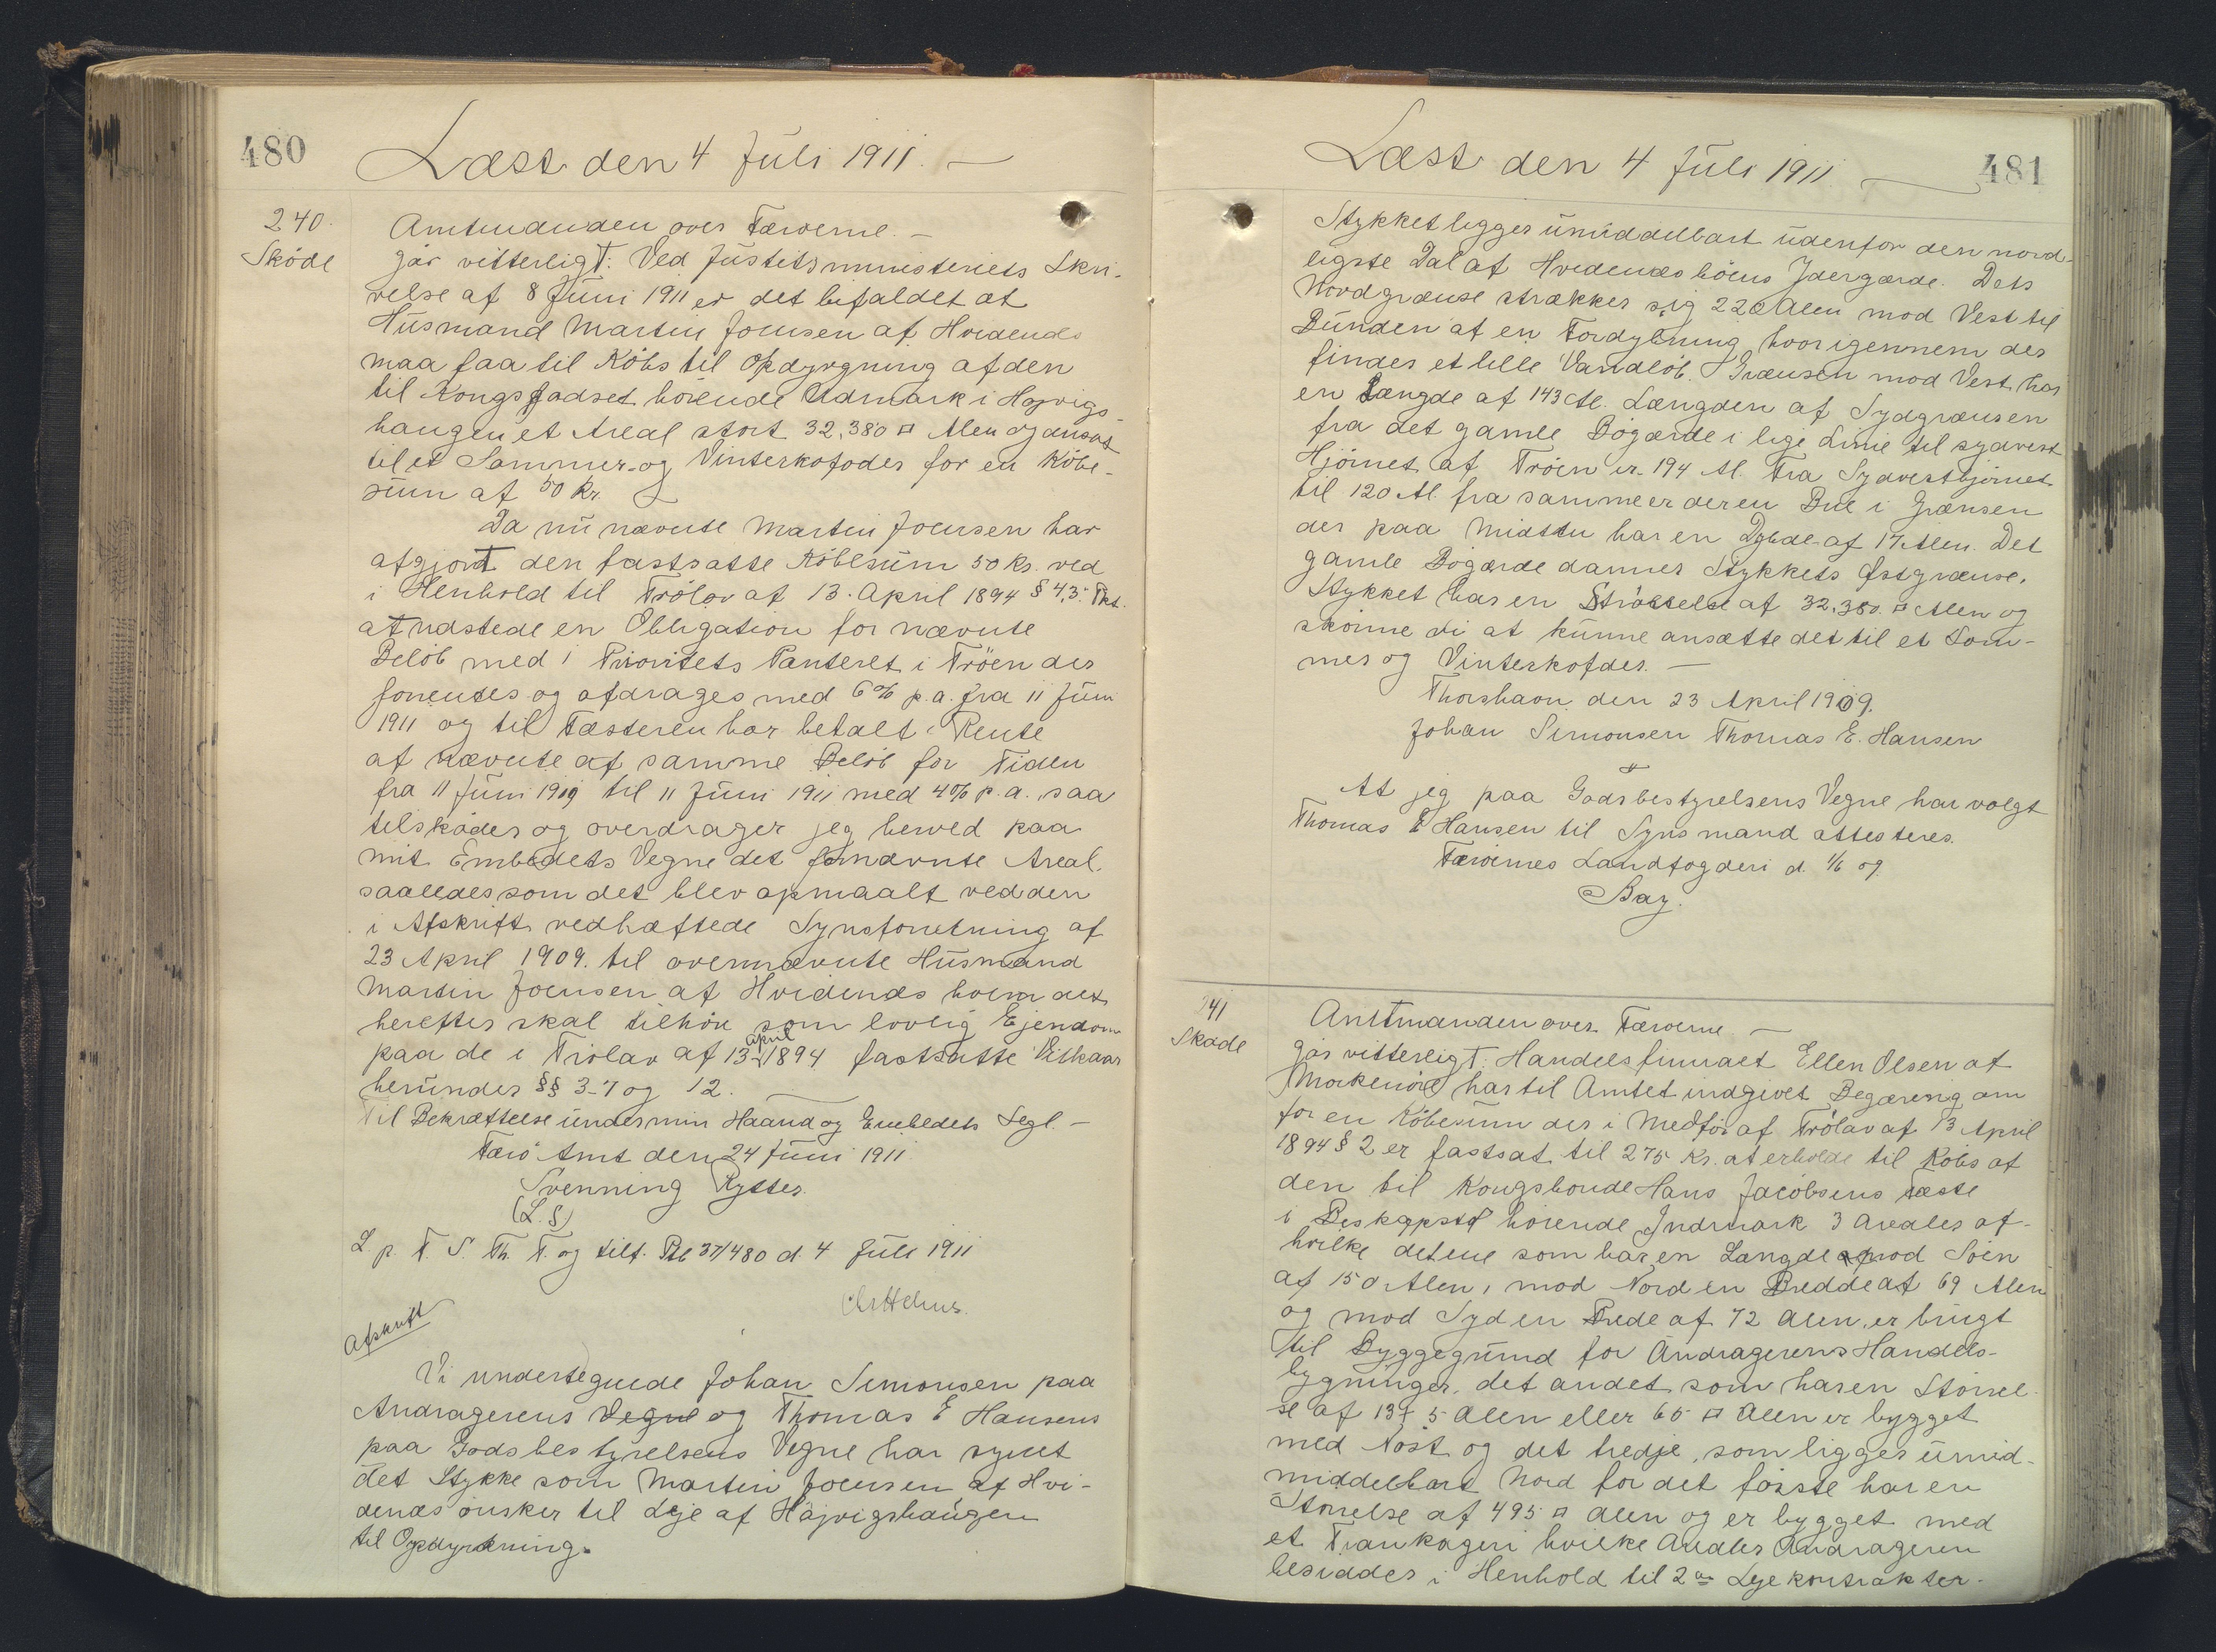 480
Læst den 4 Juli 1911. —
240.
Sköde
Amtmanden over Færøerne. —
gör vitterligt: Ved Justitsministeriets Skri-
velse af 8 Juni 1911 er det bifaldet at
Husmand Martin Joensen af Hvidenæs
maa faa til Köbs til Opdyrgning af den
til Kongsjadset hörende Udmark i Hojvigs-
haugen et Areal stort 32,380 □ Alen og ansat
til et Sommer- og Vinterkofoder for en Köbe-
sum af 50 Kr.
Da nu nævnte Martin Joensen har
afgjort den fastsatte Köbesum 50 Kr. ved
i Henhold til Trölov af 13. April 1894 § 4, 3. Pkt.
at udstede en Obligation for nævnte
Belöb med 1 Prioritets Panteret i Tröen der
forrentes og afdrages med 6% p.a. fra 11 Juni
1911 og til Fæsteren har betalt i Rente
af nævnte af samme Belöb for Tiden
fra 11 Juni 1909 til 11 Juni 1911 med 4% p.a., saa
tilsköder og overdrager jeg herved paa
mit Embedets Vegne det fornævnte Areal.
saaledes som det blev opmaalt ved den
i Afskrift vedhæftede Synsforretning af
23 April 1909. til ovennævnte Husmand
Martin Joensen af Hvidenæs hvem det
herefter skal tilhöre som lovlig Ejendom
paa de i Trölov af 13 April 1894 fastsatte Vilkaar
herunder §§ 3-7 og 12.
Til Bekræftelse under min Haand og Embedets Segl. —
Færö Amt den 24 Juni 1911.
Svenning Rytter.
(L. S)
L. p. F. S. Th. T. og tilf. Ptb 37/480 d. 4 Juli 1911
Afskrift
Vi undertegnede Johan Simonsen paa
Andragerens Vegne og Thomas E Hansens
paa Godsbestyrelsens Vegne har synet
det Stykke som Martin Joensen af Hvi-
denæs önsker til Leje af Hájvigshaugen
til Opdyrkning.
Læst den 4 Juli 1911. —
481
Stykket ligger umiddelbart udenfor den nord-
ligste Dal af Hvidenæs böens Ydergærde. Dets
Nordgrænse strækker sig 220 Alen mod Vest til
Bunden af en Fordybning hvorigennem der
findes et lille Vandlöb. Grænsen mod Vest har
en Længde af 143 Al. Længden af Sydgrænsen
fra det gamle Bögærde i lige Linie til sydvest
Hjörnet af Tröen er 194 Al. Fra Sydvesthjörnet
til 120 Al. fra samme er der en Bue i Grænsen
der paa Midten har en Dybde af 17 Alen. Det
gamle Bögærde danner Stykkets Østgrænse.
Stykket har en Störrelse af 32,380 □ Alen og
skönne vi at kunne ansætte det til et Som-
mer og Vinterkofoder. —
Thorshavn den 23 April 1909.
Johan Simonsen Thomas E. Hansen
At jeg paa Godsbestyrelsens Vegne har valgt
Thomas E Hansen til Synsmand attesteres.
Færöernes Landfogderi d. 1/6 09.
Bay.
241
Sköde
Amtmanden over Færøerne —
gör vitterligt: Handelsfirmaet Ellen Olsen af
Morkenöre har til Amtet indgivet Begæring om
for en Köbesum der i Medför af Trölov af 13 April
1894 § 2 er fastsat til 275 Kr. at erholde til Köbs af
den til Kongsbonde Hans Jacobsens Fæste
i hörende Indmark 3 Arealer af-
hvilke det ene som har en Længde mod Söen
af 150 Alen, mod Nord en Bredde af 69 Alen
og mod Syd en Brede af 72 Alen, er brugt
til Byggegrund for Andragerens Handels-
bygninger, det andet som har en Störrel-
se af 13 × 5 Alen eller 65 □ Alen er bygget
med Nöst og det tredje, som ligger umid-
middelbart Nord for det förste har en
Störrelse af 495 □ Alen og er bygget med
et Trankogeri hvilke Arealer Andrageren
besidder i Henhold til 2de Lejekontrakter.